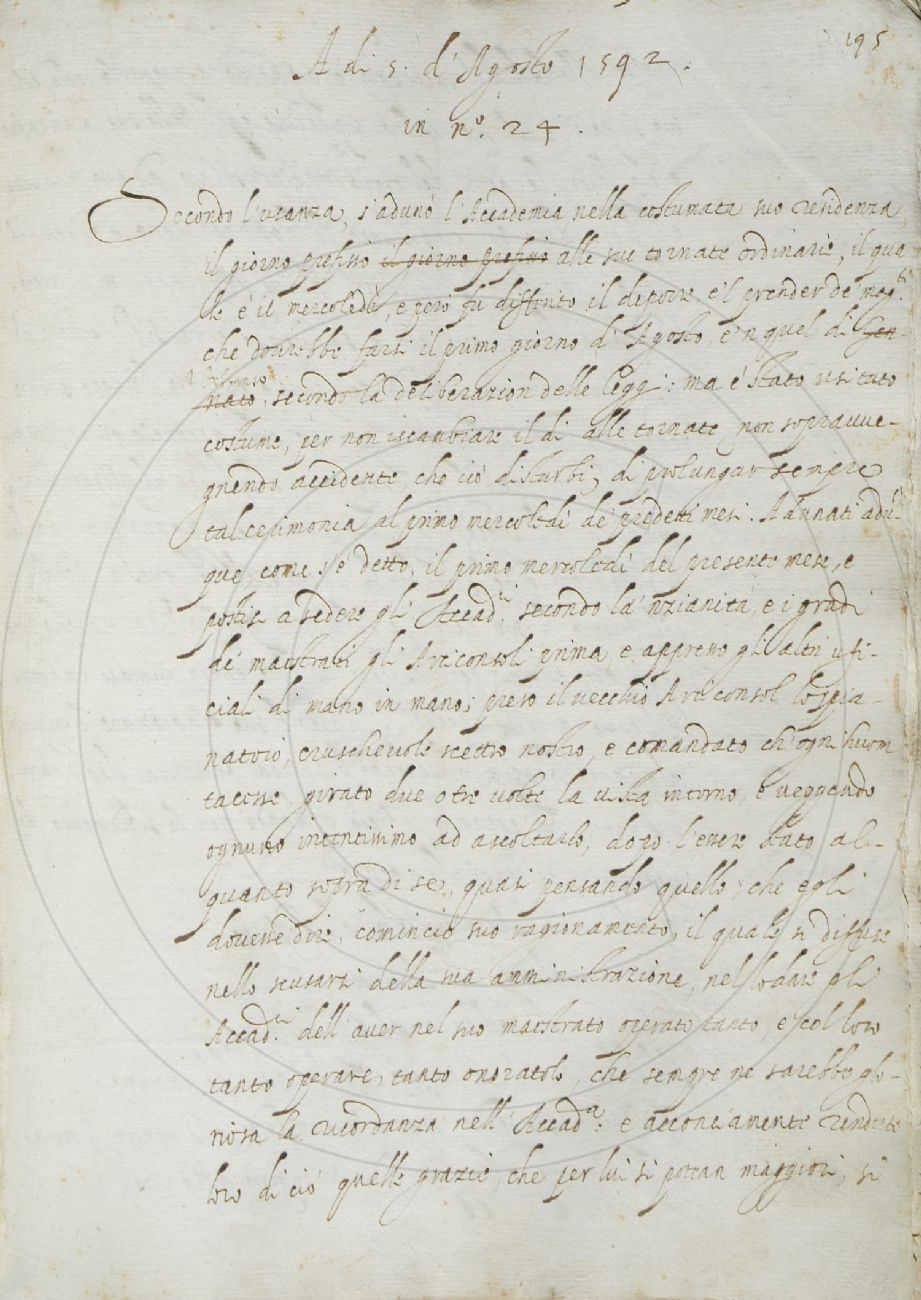 195
A di 5. d'Agosto 1592.
in n.º 24.
Secondo l'usanza, s'adunò l'Accademia nella costumata sua residenza
il giorno prefisso il giorno prefisso alle sue tornate ordinarie, il qua
le è il mercoledì, e però fu differito il deporre e'l prender de' mag.ti
che dovrebbe farsi il primo giorno di Agosto, e'n quel di Gen-
nato, secondo la deliberazion delle leggi: ma è stato usitato
costume, per non iscambiare il dì alle tornate non sopravve-
gnendo accidente che ciò disturbi, di prolungar sempre
tal cerimonia al primo mercoledì de' predetti mesi. Adunati adū-
que, come s'è detto, il primo mercoledì del presente mese, e
postisi a sedere gli Accad.ci secondo la 'nzianità, e i gradi
de' maestrati gli Arciconsoli prima, e appresso gli altri ufi-
ciali di mano in mano; preso il vecchio Arciconsol lo spia-
natoio, cruschevole scettro nostro, e comandato ch'ogni huom
tacesse girato due o tre volte la vista intorno, e veggendo
ognuno intentissimo ad ascoltarlo, dopo l'essere stato al-
quanto sopra di se, quasi pensando quello, che egli
dovesse dire, cominciò suo ragionamento, il quale si diffuse
nello scusarsi della sua amministrazione, nel lodare gli
Accad.ci dell'aver nel suo maestrato operato tanto, e col loro
tanto operare, tanto onoratolo, che sempre ne sarebbe glo-
riosa la ricordanza nell'Accad.a e acconciamente rendute
loro di ciò quelle grazie, che per lui si potean maggiori, si